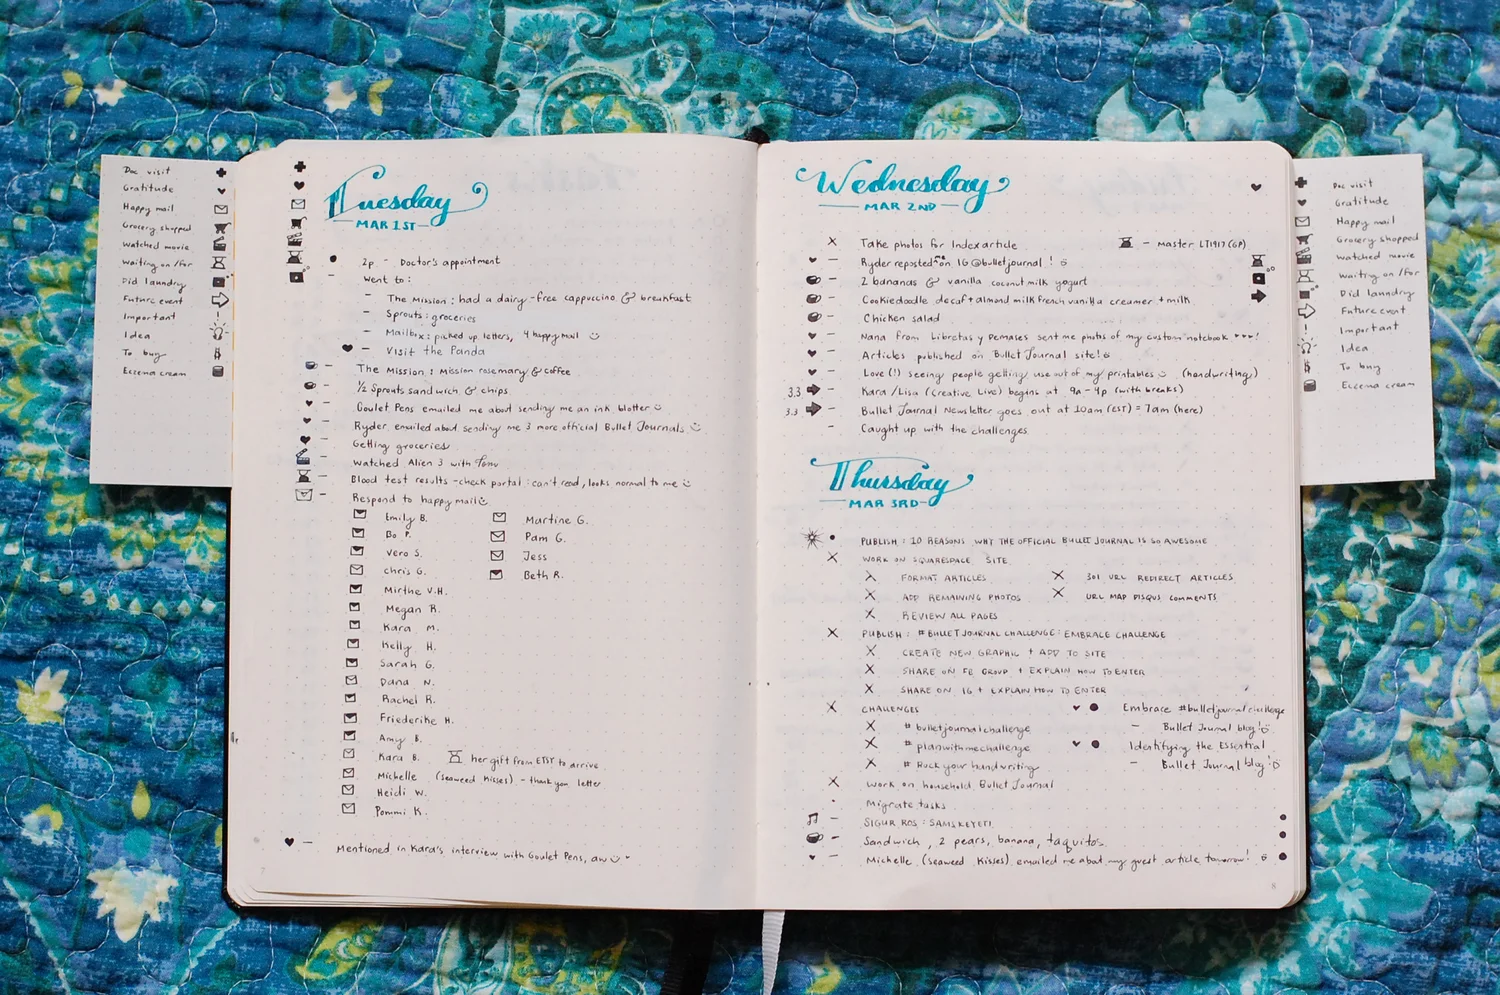 Doc visit
Gratitude
Happy mail
Grocery shopped
Watched movie
Waiting on/for
Did laundry
Future event
Important
Idea
To buy
Eczema cream
Tuesday
MAR 1ST
2p - Doctor's appointment
Went to:
- The Mission: had a dairy-free cappuccino & breakfast
- Sprouts: groceries
- Mailbox: picked up letters, 4 happy mail
- Visit the Panda
- The Mission: Mission rosemary & coffee
- 1/2 Sprouts sandwich & chips
- Goulet Pens emailed me about sending me an ink blotter
- Ryder emailed about sending me 3 more official Bullet Journals
- Getting groceries
- Watched Alien 3 with Tony
- Blood test results - check portal: can't read, looks normal to me
- Respond to happy mail
Emily B.
Bo P.
Vero S.
Chris G.
Mirthe V.H.
Megan R.
Kara M.
Kelly H.
Sarah G.
Dana N.
Rachel R.
Friederike H.
Amy B.
Kara B. her gift from ETSY to arrive
Michelle (Seaweed Kisses) - thank you letter
Heidi W.
Pommi K.
Martine G.
Pam G.
Jess
Beth R.
- Mentioned in Kara's interview with Goulet Pens, aw
Wednesday
MAR 2ND
X Take photos for Index article
- Master LT1917 (GP)
- Ryder reposted me on IG @bulletjournal!
- 2 bananas & vanilla coconut milk yogurt
- Cookiedoodle decaf + almond milk french vanilla creamer + milk
- Chicken salad
- Nana from Libretas y Demases sent me photos of my custom notebook ♥♥♥!
- Articles published on Bullet Journal site!
- Love (!) seeing people getting use out of my printables (handwriting)
3.3 - Kara/Lisa (Creative Live) begins at 9a-4p (with breaks)
3.3 - Bullet Journal Newsletter goes out at 10am (EST) = 7am (here)
- Caught up with the challenges
Thursday
MAR 3RD
PUBLISH: 10 REASONS WHY THE OFFICIAL BULLET JOURNAL IS SO AWESOME
X WORK ON SQUARESPACE SITE
X FORMAT ARTICLES
X 301 URL REDIRECT ARTICLES
X ADD REMAINING PHOTOS
X URL MAP DISQUS COMMENTS
X REVIEW ALL PAGES
X PUBLISH: #BULLETJOURNALCHALLENGE: EMBRACE CHALLENGE
X CREATE NEW GRAPHIC + ADD TO SITE
X SHARE ON FB GROUP + EXPLAIN HOW TO ENTER
X SHARE ON IG + EXPLAIN HOW TO ENTER
X CHALLENGES
X #bulletjournalchallenge
X #planwithmechallenge
X #Rockyourhandwriting
Embrace #bulletjournalchallenge
- Bullet Journal blog!
Identifying the Essential
- Bullet Journal blog!
X Work on household Bullet Journal
Migrate tasks
- SIGUR ROS: SAMSKEYETI
- Sandwich, 2 pears, banana, taquitos
- Michelle (Seaweed Kisses) emailed me about my guest article tomorrow!
8
Doc visit
Gratitude
Happy mail
Grocery shopped
Watched movie
Waiting on/for
Did laundry
Future event
Important
Idea
To buy
Eczema cream